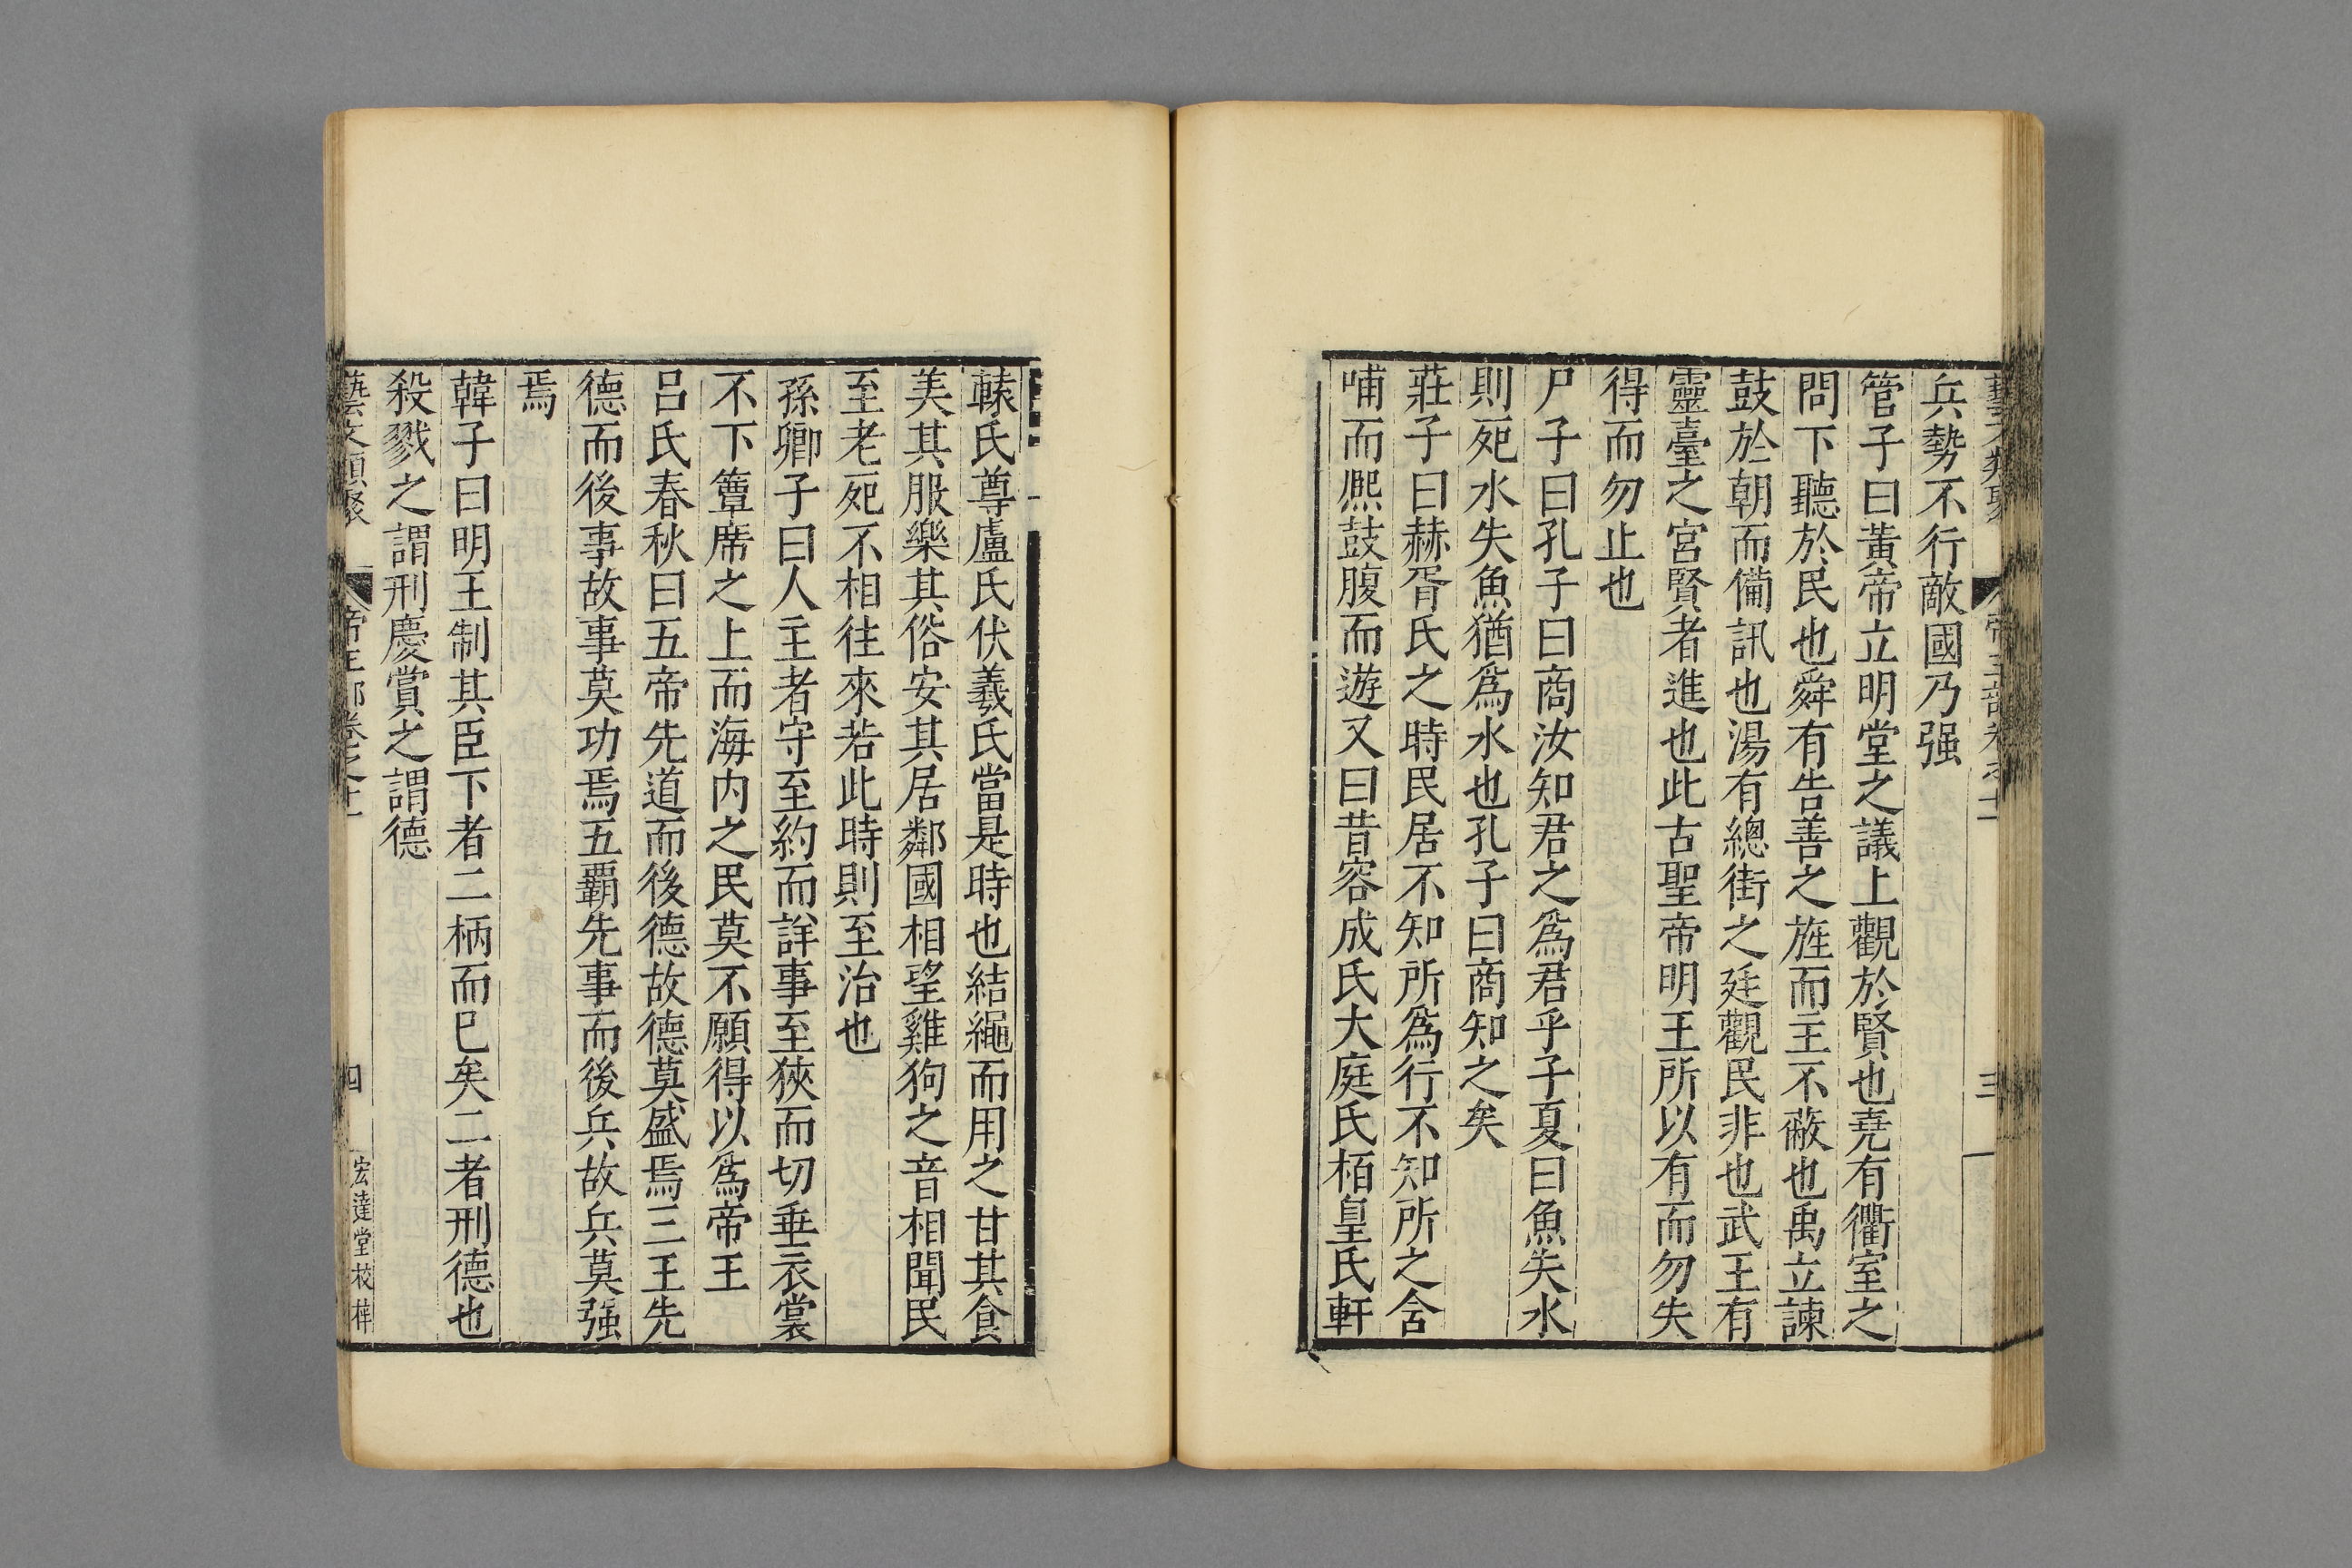 藝文類聚 帝王部卷之十一 三
兵勢不行敵國乃强
管子曰黃帝立明堂之議上觀於賢也堯有衢室之
問下聽於民也舜有告善之旌而主不蔽也禹立諫
鼓於朝而備訊也湯有總街之廷觀民非也武王有
靈臺之宮賢者進也此古聖帝明王所以有而勿失
得而勿止也
尸子曰孔子曰商汝知君之爲君乎子夏曰魚失水
則死水失魚猶爲水也孔子曰商知之矣
莊子曰赫胥氏之時民居不知所爲行不知所之含
哺而熈鼓腹而遊又曰昔容成氏大庭氏栢皇氏軒
轅氏尊盧氏伏羲氏當是時也結繩而用之甘其食
美其服樂其俗安其居鄰國相望雞狗之音相聞民
至老死不相往來若此時則至治也
孫卿子曰人主者守至約而詳事至狹而切垂衣裳
不下簟席之上而海内之民莫不願得以爲帝王
吕氏春秋曰五帝先道而後德故德莫盛焉三王先
德而後事故事莫功焉五覇先事而後兵故兵莫强
焉
韓子曰明王制其臣下者二柄而已矣二者刑德也
殺戮之謂刑慶賞之謂德
藝文類聚 帝王部卷之十一 四 宏達堂校梓